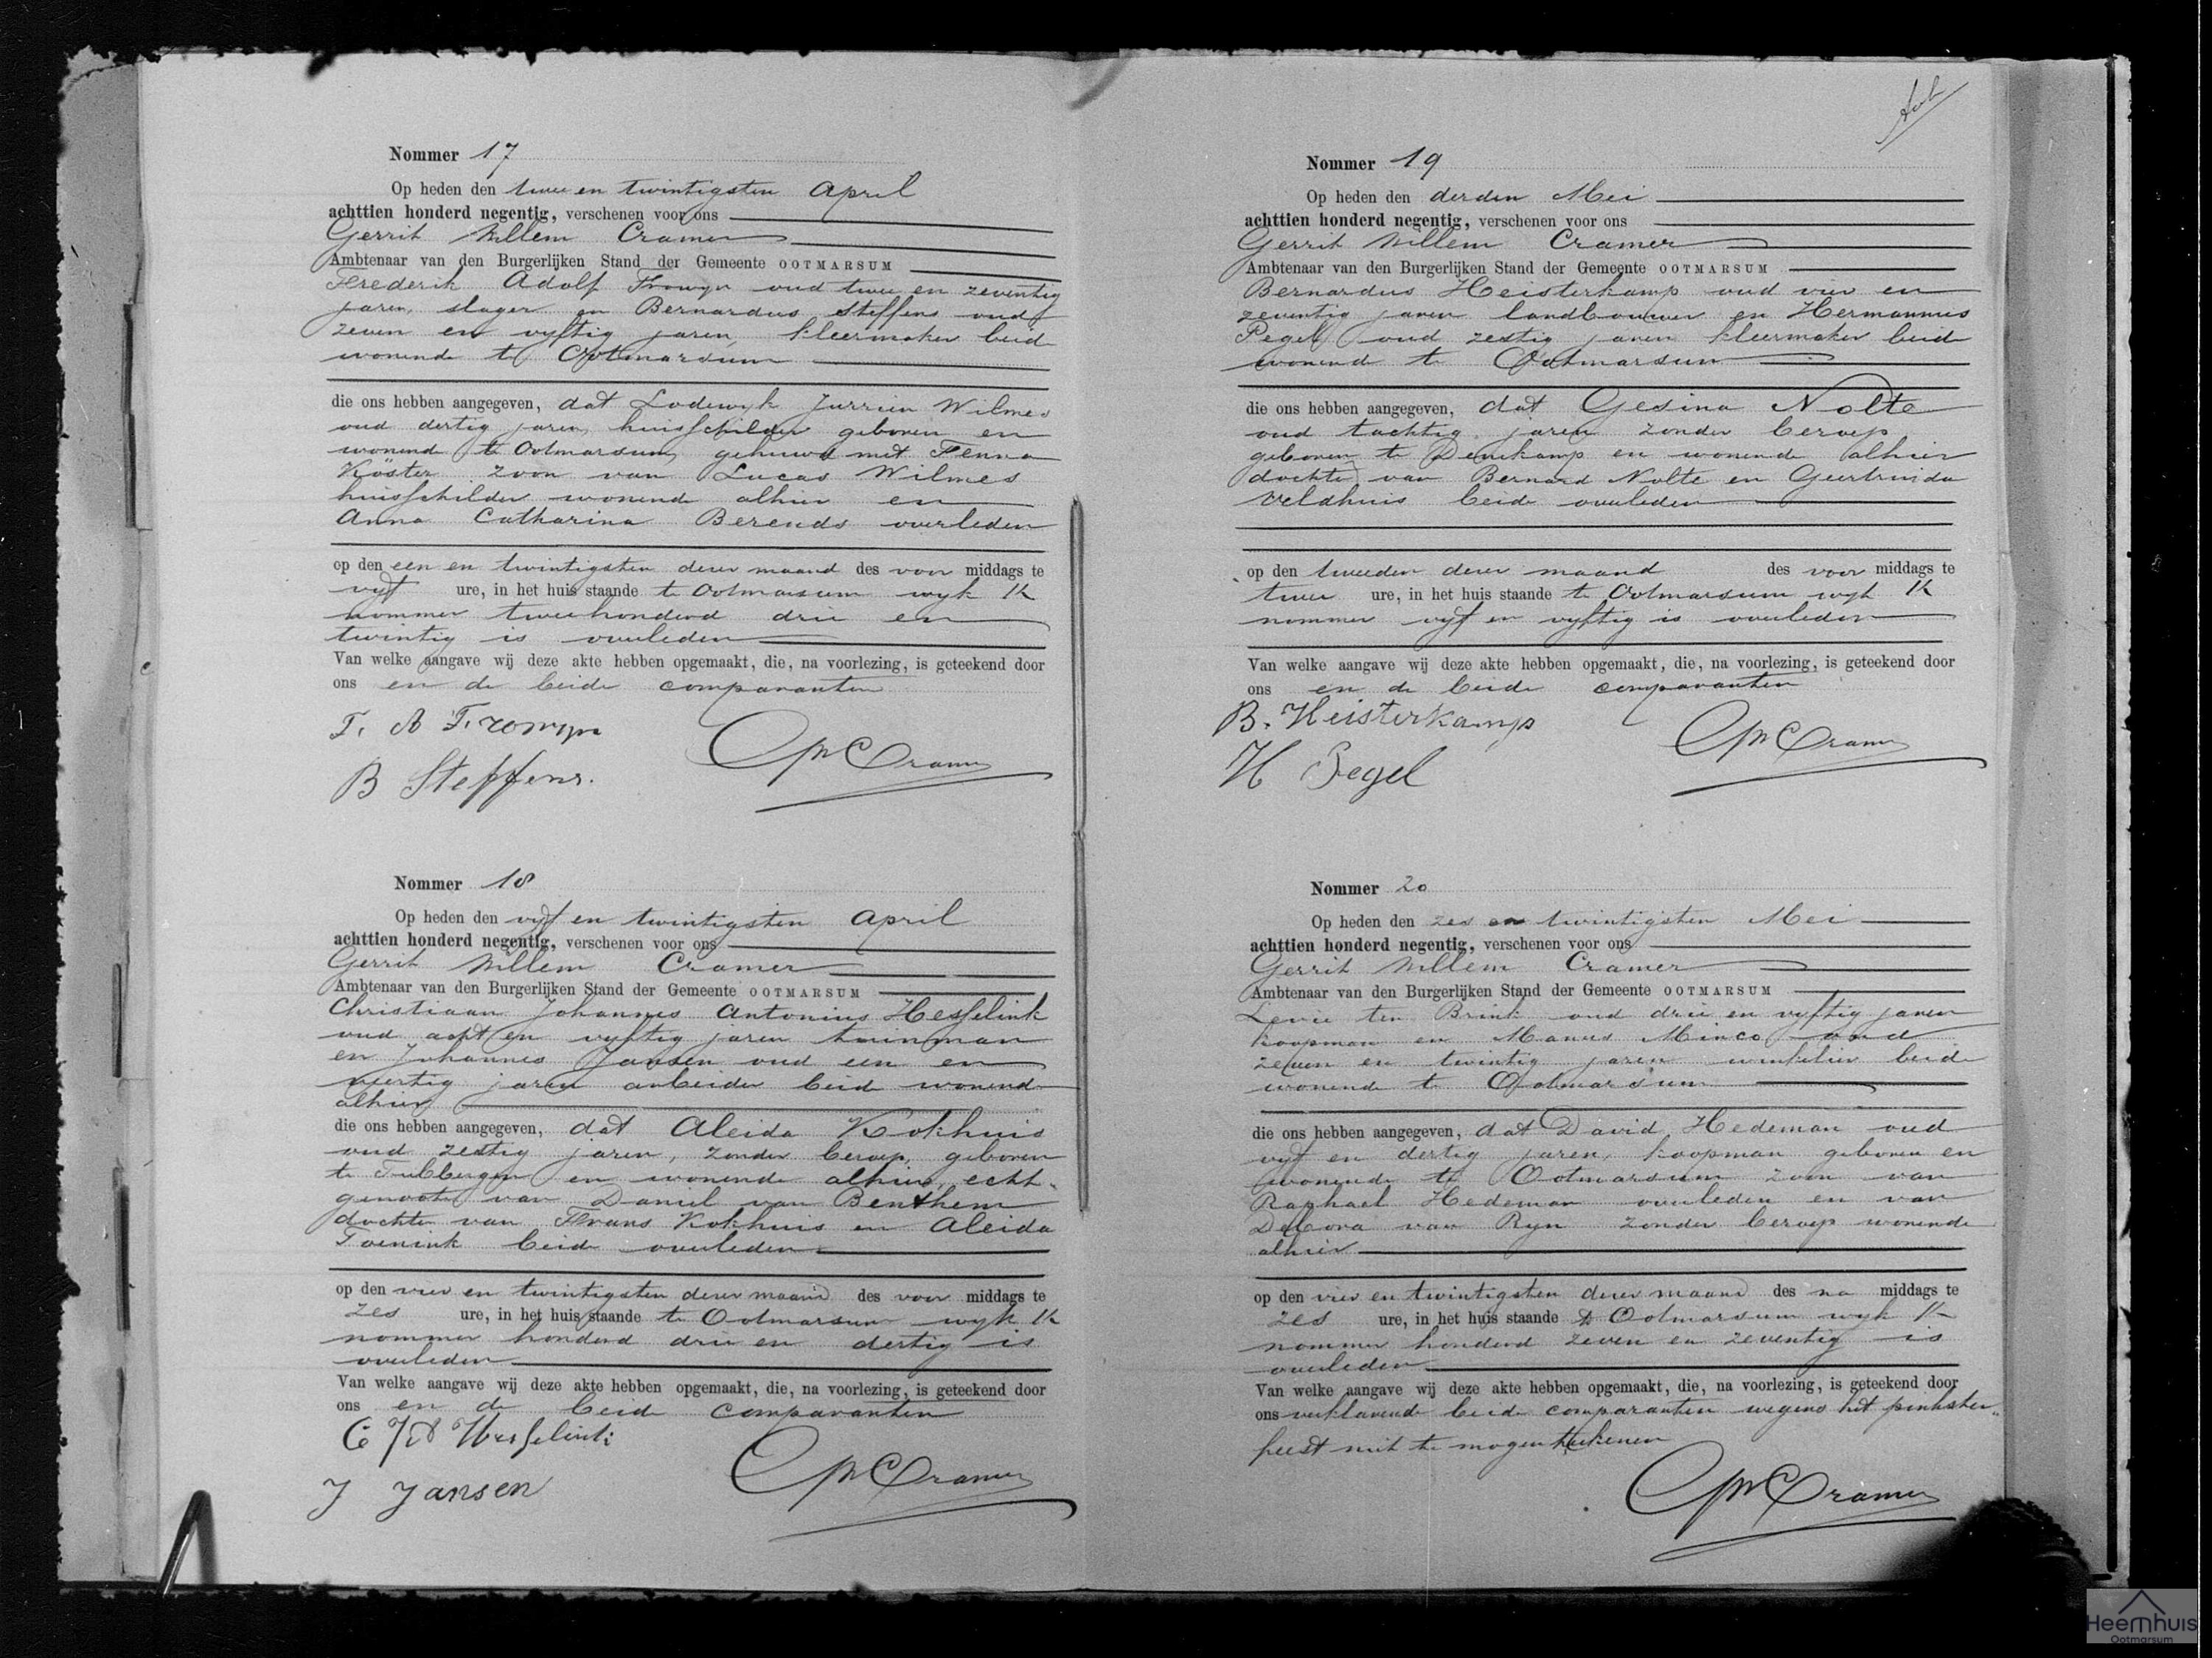 Nommer 17
Op heden den twee en twintigsten April
achttien honderd negentig, verschenen voor ons
Gerrit Willem Cramer
Ambtenaar van den Burgerlijken Stand der Gemeente OOTMARSUM
Frederik Adolf Frowyn oud twee en zeventig
jaren, slager en Bernardus Steffens oud
zeven en vyftig jaren, kleermaker beid
wonende te Ootmarsum
die ons hebben aangegeven, dat Lodewyk Jurrien Wilmes
oud dertig jaren, huisschilder geboren en
wonende te Ootmarsum, gehuwd met Fenna
Köster zoon van Lucas Wilmes
huisschilder wonende alhier en
Anna Catharina Berends overleden
op den een en twintigsten dezer maand des voor middags te
vyf ure, in het huis staande te Ootmarsum wyk K
nommer tweehonderd drie en
twintig is overleden
Van welke aangave wij deze akte hebben opgemaakt, die, na voorlezing, is geteekend door
ons en de beide comparanten
F. A Frowyn
B Steffens.
GW Cramer
Nommer 18
Op heden den vyf en twintigsten April
achttien honderd negentig, verschenen voor ons
Gerrit Willem Cramer
Ambtenaar van den Burgerlijken Stand der Gemeente OOTMARSUM
Christiaan Johannes Antonius Hesselink
oud acht en vyftig jaren tuinman
en Johannes Jansen oud een en
veertig jaren arbeider beid wonend
alhier
die ons hebben aangegeven, dat Aleida Kokhuis
oud zestig jaren, zonder beroep, geboren
te Tubbergen en wonende alhier, echt-
genoote van Daniel van Benthem
dochter van Frans Kokhuis en Aleida
Toenink beide overleden
op den vier en twintigsten dezer maand des voor middags te
zes ure, in het huis staande te Ootmarsum wyk K
nommer honderd drie en dertig is
overleden
Van welke aangave wij deze akte hebben opgemaakt, die, na voorlezing, is geteekend door
ons en de beide comparanten
C J A Hesselink
J Jansen
GW Cramer
Nommer 19
Op heden den derden Mei
achttien honderd negentig, verschenen voor ons
Gerrit Willem Cramer
Ambtenaar van den Burgerlijken Stand der Gemeente OOTMARSUM
Bernardus Heisterkamp oud vier en
zeventig jaren landbouwer en Hermannus
Pegel oud zestig jaren kleermaker beid
wonend te Ootmarsum
die ons hebben aangegeven, dat Gesina Nolte
oud tachtig jaren zonder beroep
geboren te Denekamp en wonende alhier
dochter van Bernard Nolte en Geertruida
Veldhuis beide overleden
op den tweeden dezer maand des voor middags te
twee ure, in het huis staande te Ootmarsum wyk K
nommer vyf en vyftig is overleden
Van welke aangave wij deze akte hebben opgemaakt, die, na voorlezing, is geteekend door
ons en de beide comparanten
B. Heisterkamp
H Pegel
GW Cramer
Nommer 20
Op heden den zes en twintigsten Mei
achttien honderd negentig, verschenen voor ons
Gerrit Willem Cramer
Ambtenaar van den Burgerlijken Stand der Gemeente OOTMARSUM
Levie ten Brink oud drie en vyftig jaren
koopman en Manus Minco oud
zeven en twintig jaren winkelier beide
wonend te Ootmarsum
die ons hebben aangegeven, dat David Hedeman oud
vyf en dertig jaren, koopman geboren en
wonende te Ootmarsum zoon van
Raphael Hedeman overleden en van
Debora van Ryn zonder beroep wonende
alhier
op den vier en twintigsten dezer maand des na middags te
zes ure, in het huis staande te Ootmarsum wyk K
nommer honderd zeven en zeventig is
overleden
Van welke aangave wij deze akte hebben opgemaakt, die, na voorlezing, is geteekend door
ons verklarende beide comparanten wegens het pinkster-
feest niet te mogen teekenen
GW Cramer
Heemhuis
Ootmarsum